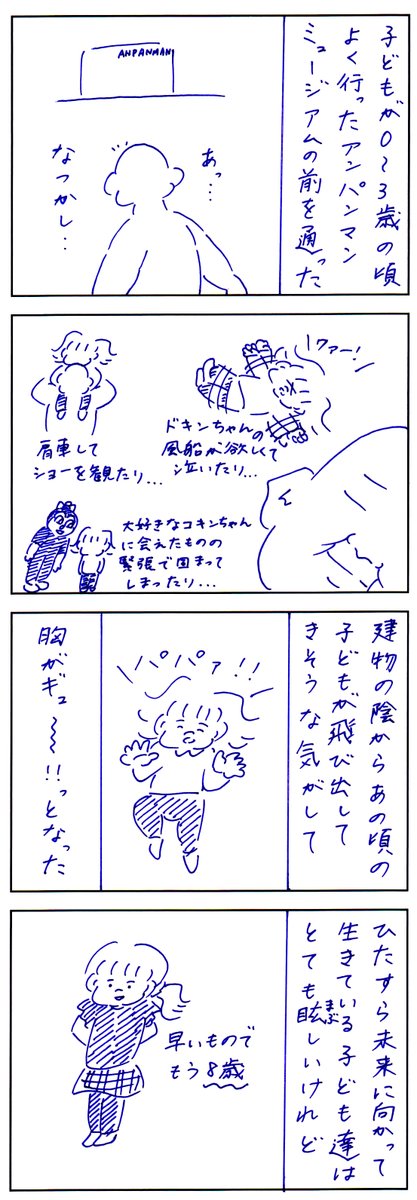 子どもが0〜3歳の頃
よく行ったアンパンマン
ミュージアムの前を通った
ANPANMAN
あっ…
なつかし…
ワァー!
ドキンちゃんの
風船が欲しくて
泣いたり…
肩車して
ショーを観たり…
大好きなコキンちゃん
に会えたものの
緊張で固まって
しまったり…
建物の陰からあの頃の
子どもが飛び出して
きそうな気がして
パパァ!!
胸がギュ〜〜!!っとなった
ひたすら未来に向かって
生きている子ども達は
とても眩しいけれど
まぶ
早いもので
もう8歳